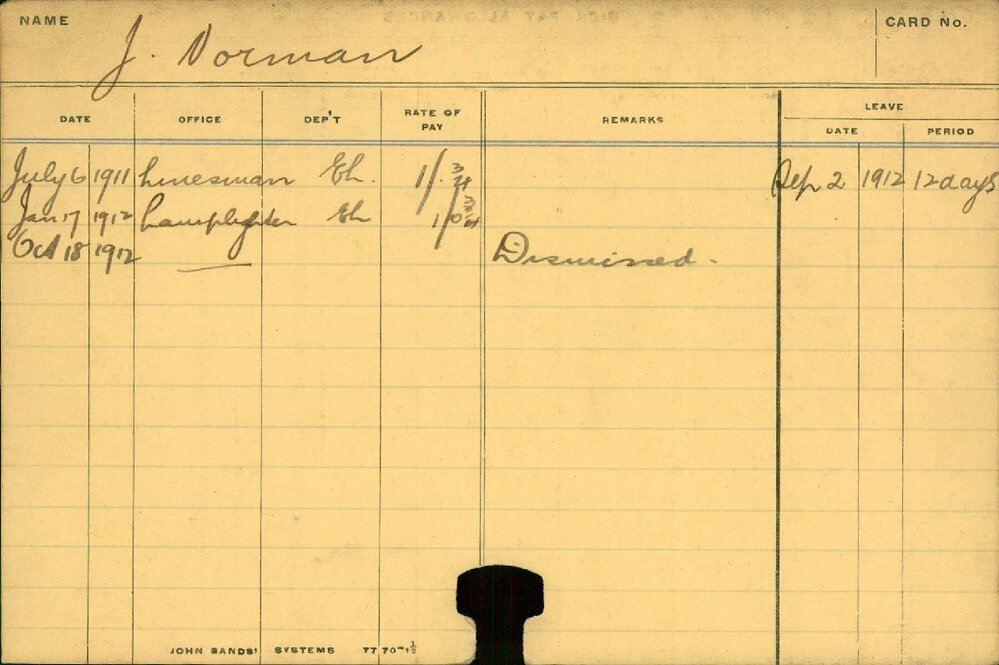 NAME
CARD No.
J. Norman
DATE OFFICE DEP'T RATE OF PAY REMARKS LEAVE
DATE PERIOD
July 6 1911 Linesman El. Sep 2 1912 12 days
Jan 17 1912 Lamplighter El
Oct 18 1912 Dismissed.
JOHN SANDS' SYSTEMS